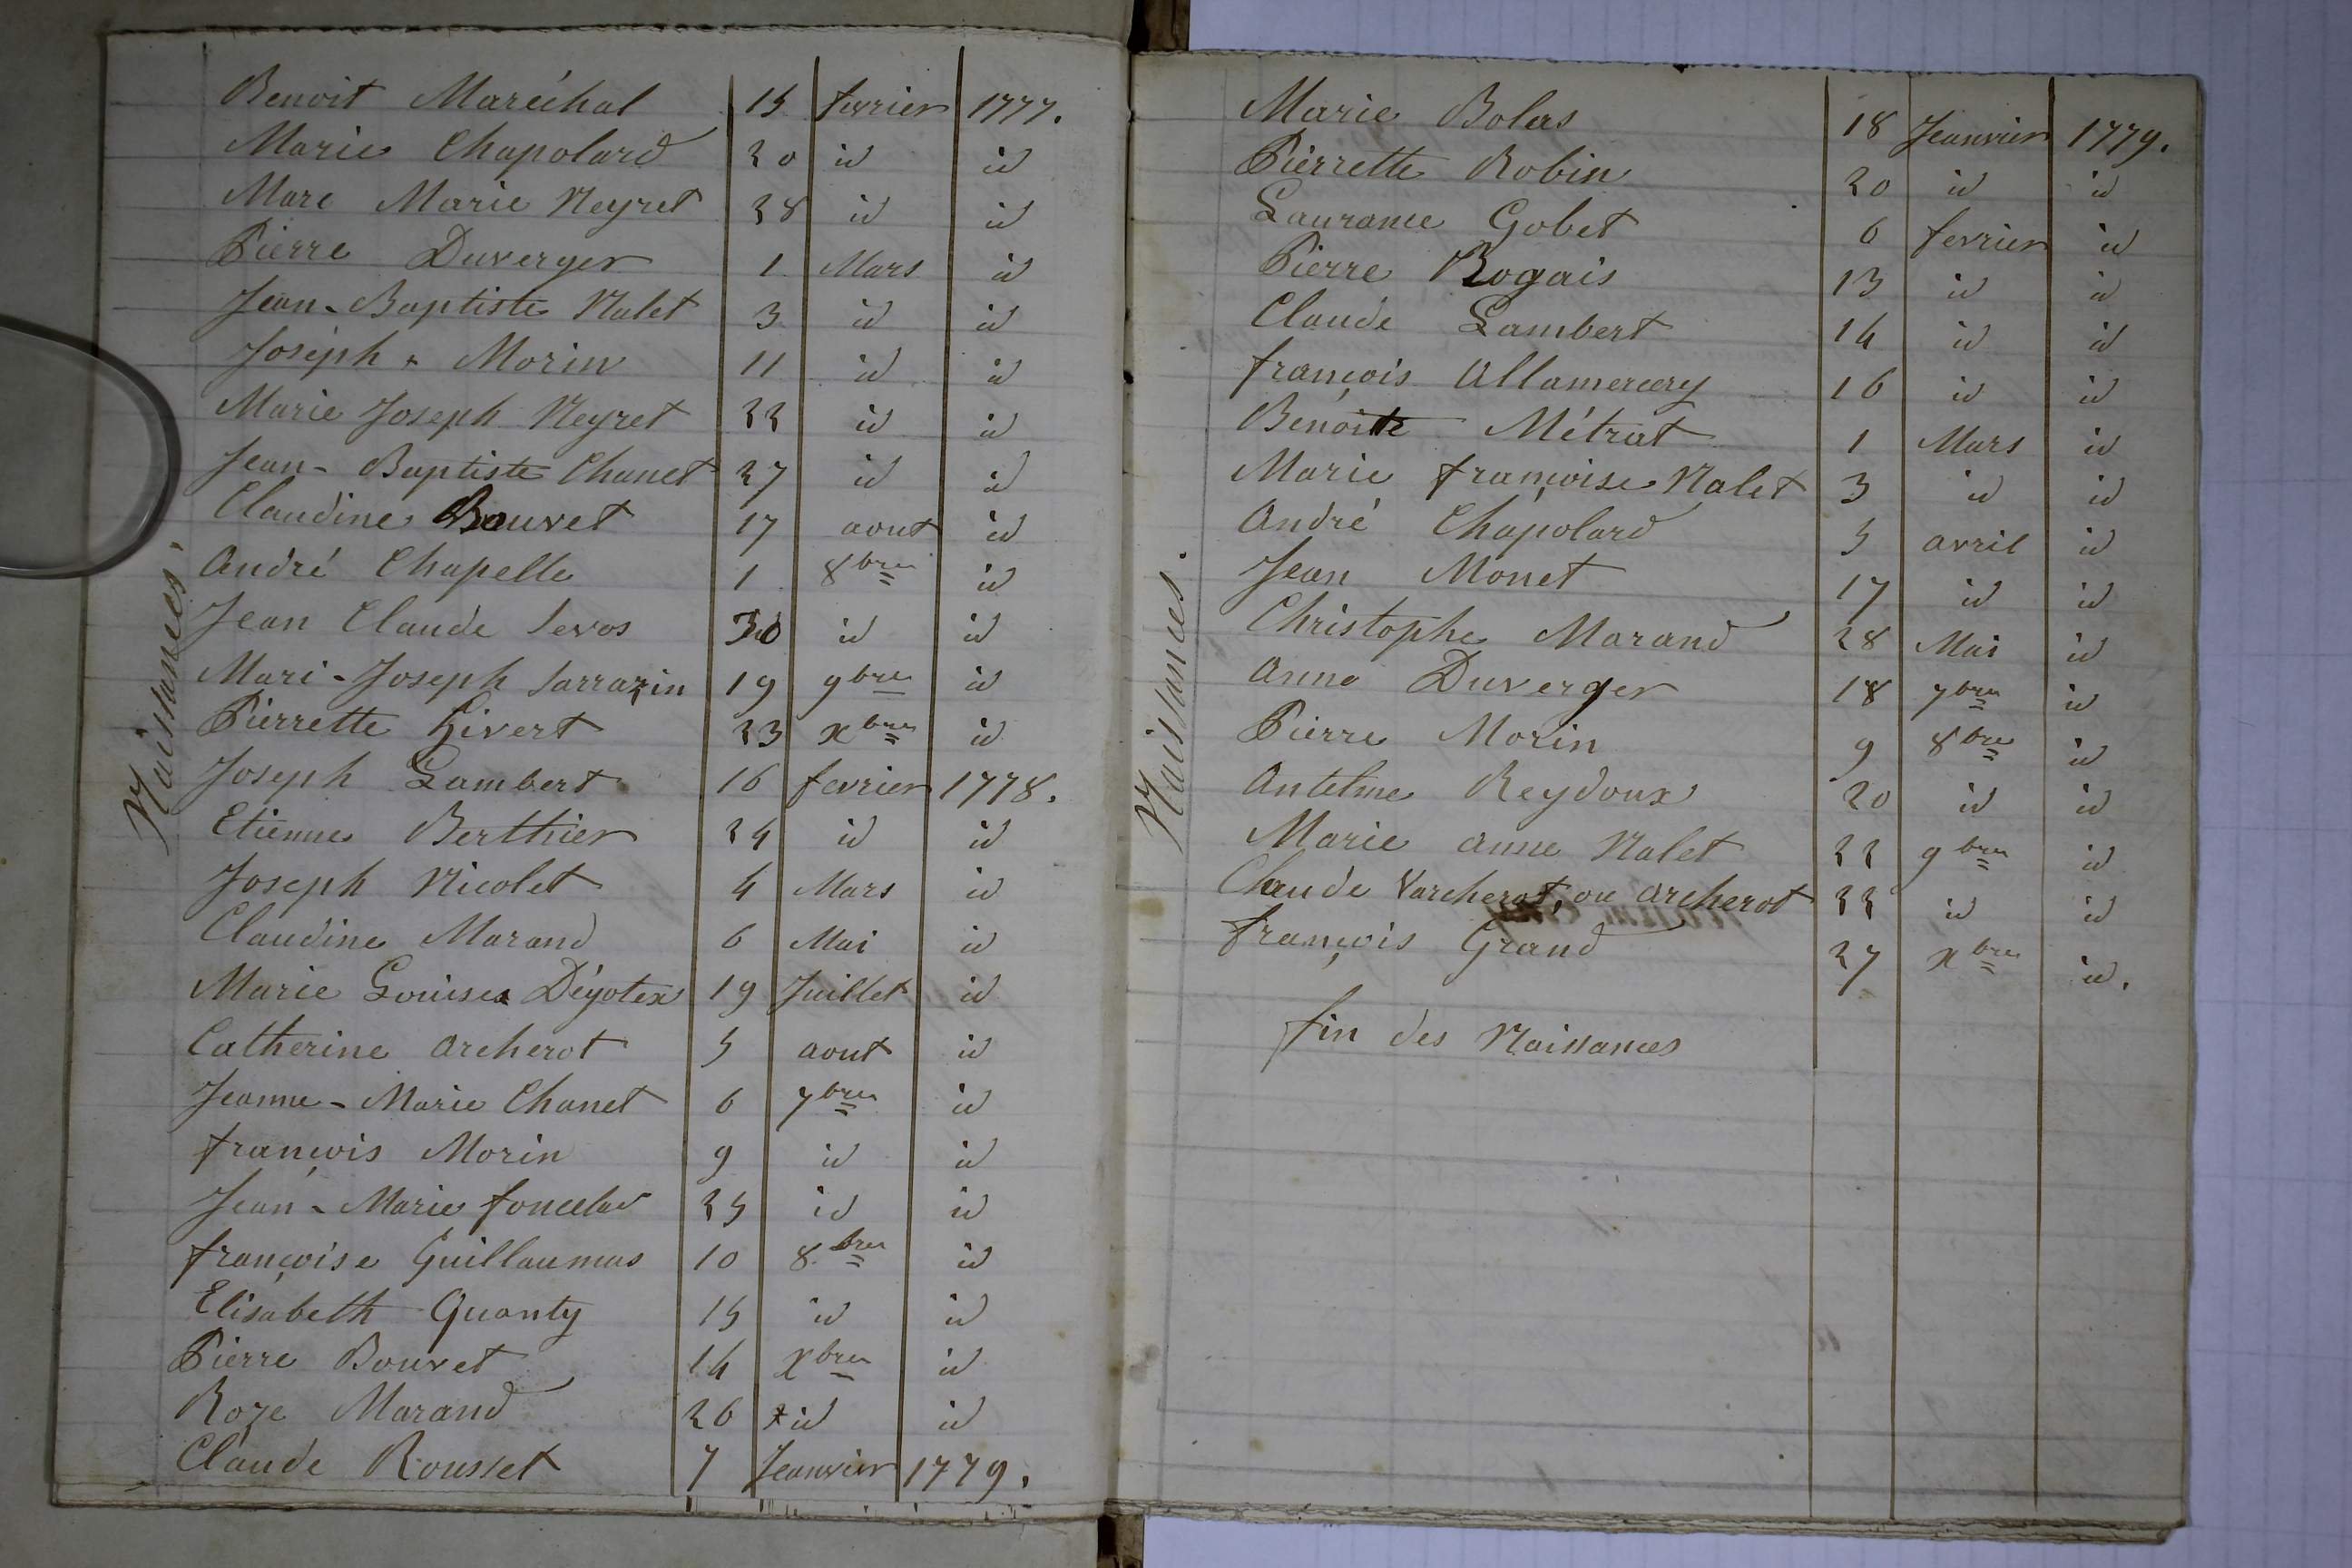 Naissances.
Benoit Maréchal 15 fevrier 1777.
Marie Chapolard 20 id id
Marc Marie Neyret 28 id id
Pierre Duverger 1 Mars id
Jean-Baptiste Nalet 3 id id
Joseph Morin 11 id id
Marie Joseph Neyret 22 id id
Jean-Baptiste Chanet 27 id id
Claudine Bouvet 17 aout id
André Chapelle 1 8bre id
Jean Claude Sevos 30 id id
Mari-Joseph Sarrazin 19 9bre id
Pierrette Givert 23 xbre id
Joseph Lambert 16 fevrier 1778.
Etienne Berthier 24 id id
Joseph Nicolet 4 Mars id
Claudine Marand 6 Mai id
Marie Louise Dégotex 19 Juillet id
Catherine Archerot 5 aout id
Jeanne-Marie Chanet 6 7bre id
françois Morin 9 id id
Jean-Marie 25 id id
françoise Guillaumas 10 8bre id
Elisabeth Quanty 15 id id
Pierre Bouvet 14 Xbre id
Roze Marand 26 id id
Claude Rousset 7 Jeanvier 1779.
Naissances.
Marie Bolas 18 Jeanvier 1779.
Pierrette Robin 20 id id
Laurance Gobet 6 fevrier id
Pierre Rogais 13 id id
Claude Lambert 14 id id
françois Allamercery 16 id id
Benoite Métrat 1 Mars id
Marie françoise Nalet 3 id id
André Chapolard 5 avril id
Jean Monet 17 id id
Christophe Marand 28 Mai id
Anne Duverger 18 7bre id
Pierre Morin 9 8bre id
Antelme Reydoux 20 id id
Marie anne Nalet 22 9bre id
Claude Varcherot, ou Archerot 22 id id
françois Grand 27 xbre id.
fin des Naissances